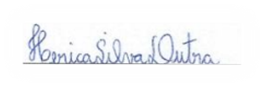 Herica Silva Dutra